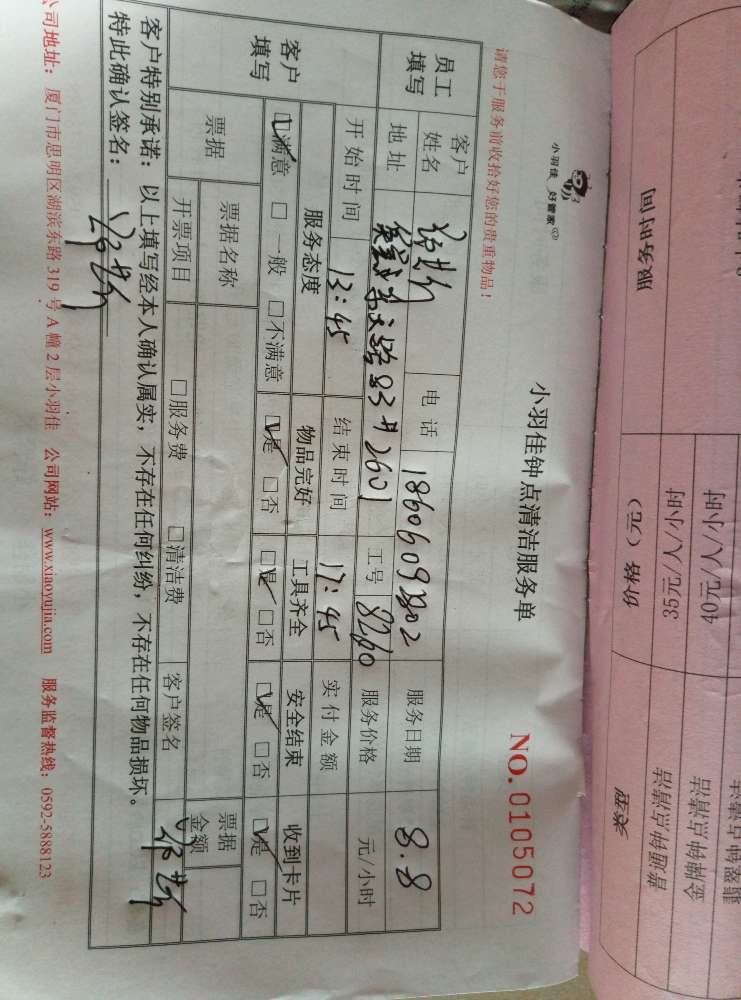 小羽佳 好管家
小羽佳钟点清洁服务单
NO. 0105072
请您于服务前收拾好您的贵重物品！
员工填写
客户姓名
电话
服务日期 8.8
地址 83# 2601
工号 8260
服务价格 元/小时
开始时间 13:45
结束时间 17:45
实付金额
客户填写
服务态度 物品完好 工具齐全 安全结束 收到卡片
☑满意 □一般 □不满意 ☑是 □否 ☑是 □否 ☑是 □否 ☑是 □否
票据
票据名称
票据金额
开票项目 □服务费 □清洁费 客户签名
客户特别承诺：以上填写经本人确认属实，不存在任何纠纷，不存在任何物品损坏。
特此确认签名：
公司地址：厦门市思明区湖滨东路 319 号 A 幢 2 层小羽佳 公司网站：www.xiaoyujia.com 服务监督热线：0592-5888123
服务时间
价格（元）
类型
35元/人/小时
普通钟点清洁
40元/人/小时